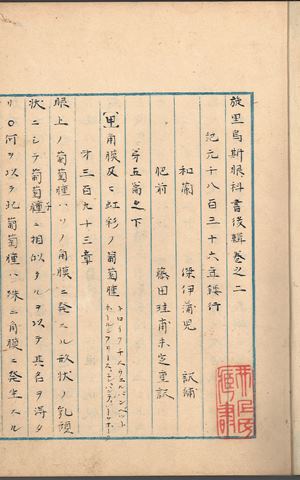 旋里烏斯眼科書後輯巻之二
紀元千八百三十六年鏤行
和蘭　傑伊蒲児　訳編
肥前　藤田圭甫未定重訳
第五篇之下
[甲]角膜及ヒ虹彩ノ葡萄腫
第三百九十三章
眼上ノ葡萄腫ハソノ角膜ニ発スル形状ノ乳頭
状ニシテ葡萄種子ニ相似タルヲ以テ其名ヲ得タ
リ○何ヲ以テ此葡萄腫ハ殊ニ角膜ニ発生スル